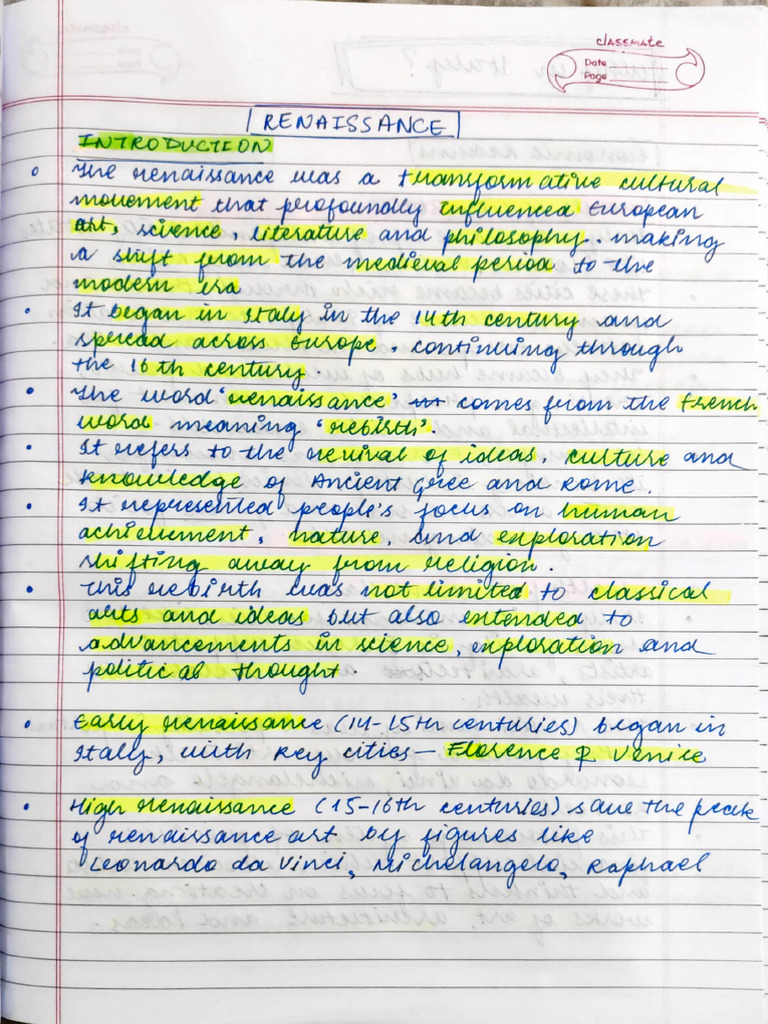 classmate
Date
Page
RENAISSANCE
INTRODUCTION
The renaissance was a transformative cultural
movement that profoundly influenced European
art, science, literature and philosophy. making
a shift from the medieval period to the
modern era
It began in Italy in the 14th century and
spread across Europe, continuing through
the 16th century.
The word 'renaissance' comes from the French
word meaning 'rebirth'.
It refers to the revival of ideas, culture and
knowledge of Ancient Gree and Rome.
It represented people's focus on human
achievement, nature, and exploration
shifting away from religion.
This rebirth was not limited to classical
arts and ideas but also extended to
advancements in science, exploration and
political thought.
Early renaissance (14-15th centuries) began in
Italy, with key cities— Florence & Venice
High renaissance (15-16th centuries) saw the peak
of renaissance art by figures like
Leonardo da Vinci, Michelangelo, Raphael